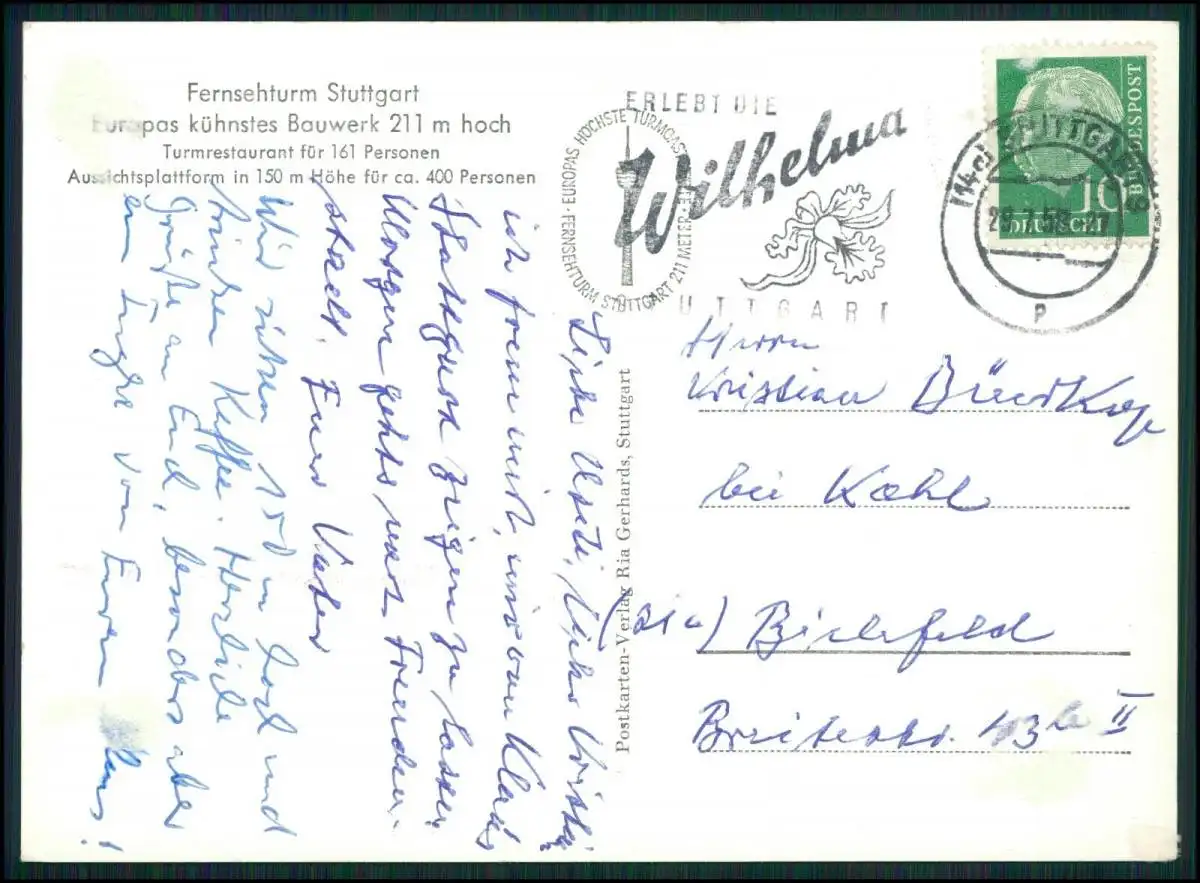 Fernsehturm Stuttgart
Europas kühnstes Bauwerk 211 m hoch
Turmrestaurant für 161 Personen
Aussichtsplattform in 150 m Höhe für ca. 400 Personen
ERLEBT DIE
Wilhelma
STUTTGART
EUROPAS HÖCHSTE TURMGAST
FERNSEHTURM STUTTGART 211 METER
(14a) STUTTGART 9
29.7.58
P
DEUTSCHE BUNDESPOST
10
Herrn
Kristian
bei Kohl
Bielefeld
Breitestr. 43 b II
Postkarten-Verlag Ria Gerhards, Stuttgart
Liebe Lieber
ich freue mich, mir von Klaus
Stuttgart zeigen zu lassen.
Morgen gehts nach Freuden-
stadt. Euer Vater
Wir sitzen 150 m hoch und
trinken Kaffee. Herzliche
Grüße an Euch, besonders aber
an von Eurem Klaus!